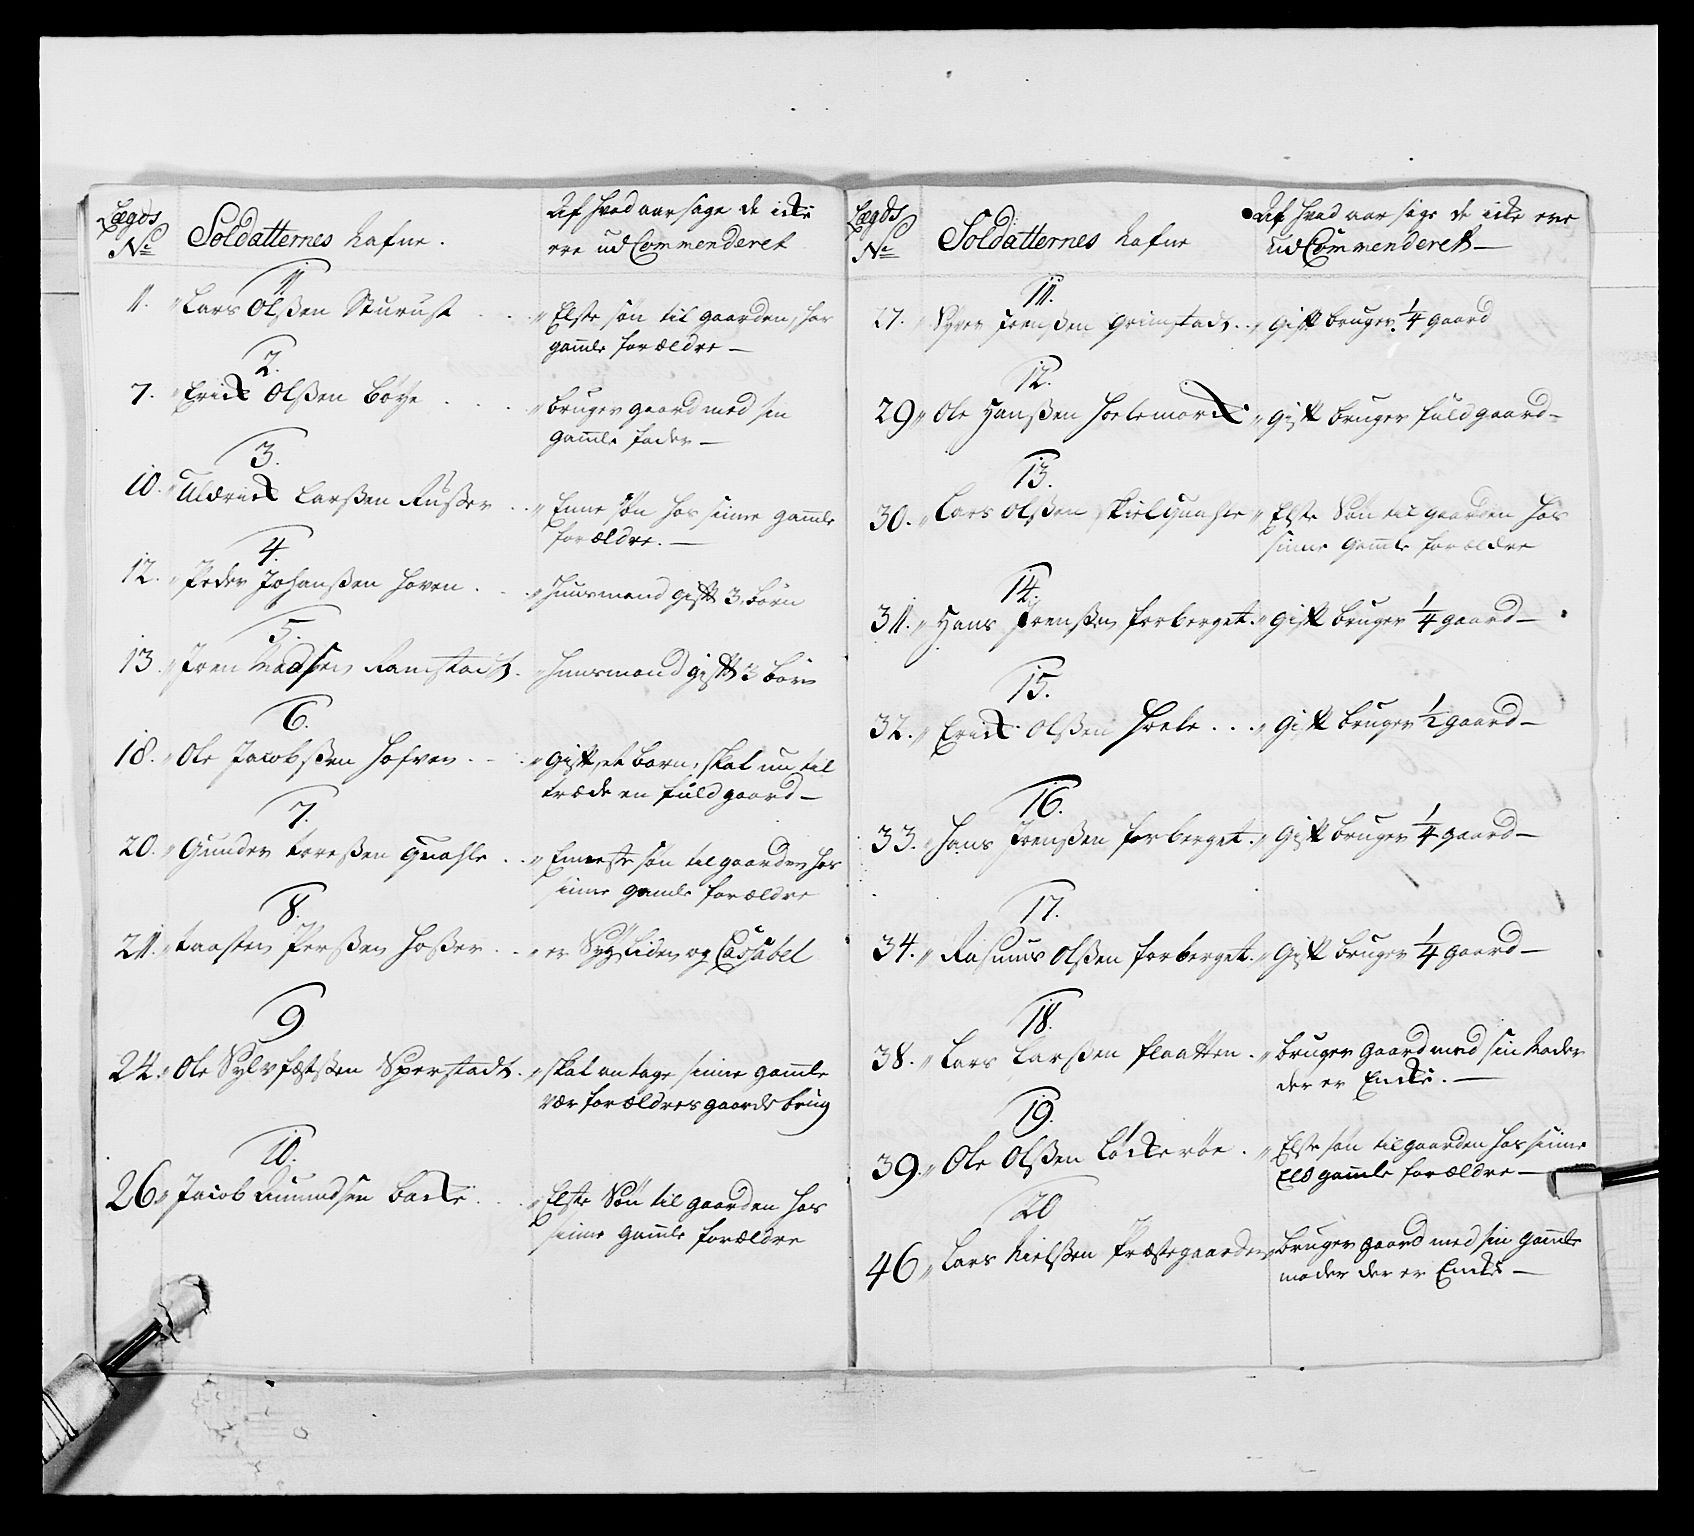 Lægds
No
Soldatternes Nafne.
Af hvad aarsage de icke
ere udCommenderet
1
1. Lars Olßen Sturust
Elste søn til gaarden, har
gamle forældre
2.
7. Erick Olßen Bøye
bruger gaard med sin
gamle fader
3.
10. Uldrick Larßen
Enne søn hos sinne gamle
forældre.
4.
12. Peder Johanßen Hoven
Huusmand gift 3 børn
5.
13. Joen Madsen Ramstadt
Huusmand gift 3 børn
6.
18. Ole Jacobßen
gift, et barn, skal nu til
træde en fuld gaard
7.
20. Gunder Toreßen Quahle
Enneste søn til gaarden hos
sinne gamle forældre
8.
21. Taasten Perßen
er Syg liden og Cassabel
9
24. Ole Sylvfæstßen Sperstadt
skal antage sinne gamle
vær forældres gaards brug
10.
26 Jacob Amundsen Backe
Elste Søn til gaarden hos
sinne gamle forældre
Lægds
No
Soldatternes Nafne
Af hvad aarsage de icke ere
udCommenderet
11.
27. Syver Joenßen Grimstadt
gift bruger 1/4 gaard
12.
29 Ole Hanßen Hoelemarck
gift bruger fuld gaard
13.
30. Lars Olßen Skielquahle
Elste Søn til gaarden hos
sinne gamle forældre
14.
31. Hans Joenßen Forberget
gift bruger 1/4 gaard
15.
32. Erick Olßen Hoele
gift bruger 1/2 gaard
16.
33. Hans Joenßen Forberget
gift bruger 1/4 gaard
17.
34. Rasmus Olßen Forberget
gift bruger 1/4 gaard
18.
38. Lars Larßen Flaatten
bruger gaard med sin Moder
der er Encke.
19.
39. Ole Olßen Løckerøe
Elste søn til gaarden hos sinne
Eld gamle forældre
20
46 Lars Nielßen Præstegaarden
bruger gaard med sin gamle
moder der er Encke